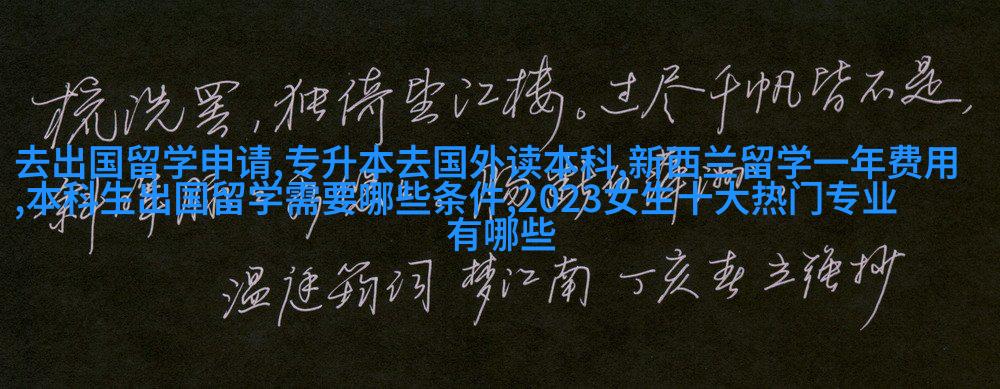 梳洗罢,独倚望江楼。过尽千帆皆不是,
去出国留学申请,专升本去国外读本科,新西兰留学一年费用
,本科生出国留学需要哪些条件,2023女生十大热门专业
有哪些
温庭筠词 梦江南 丁亥春 立强抄